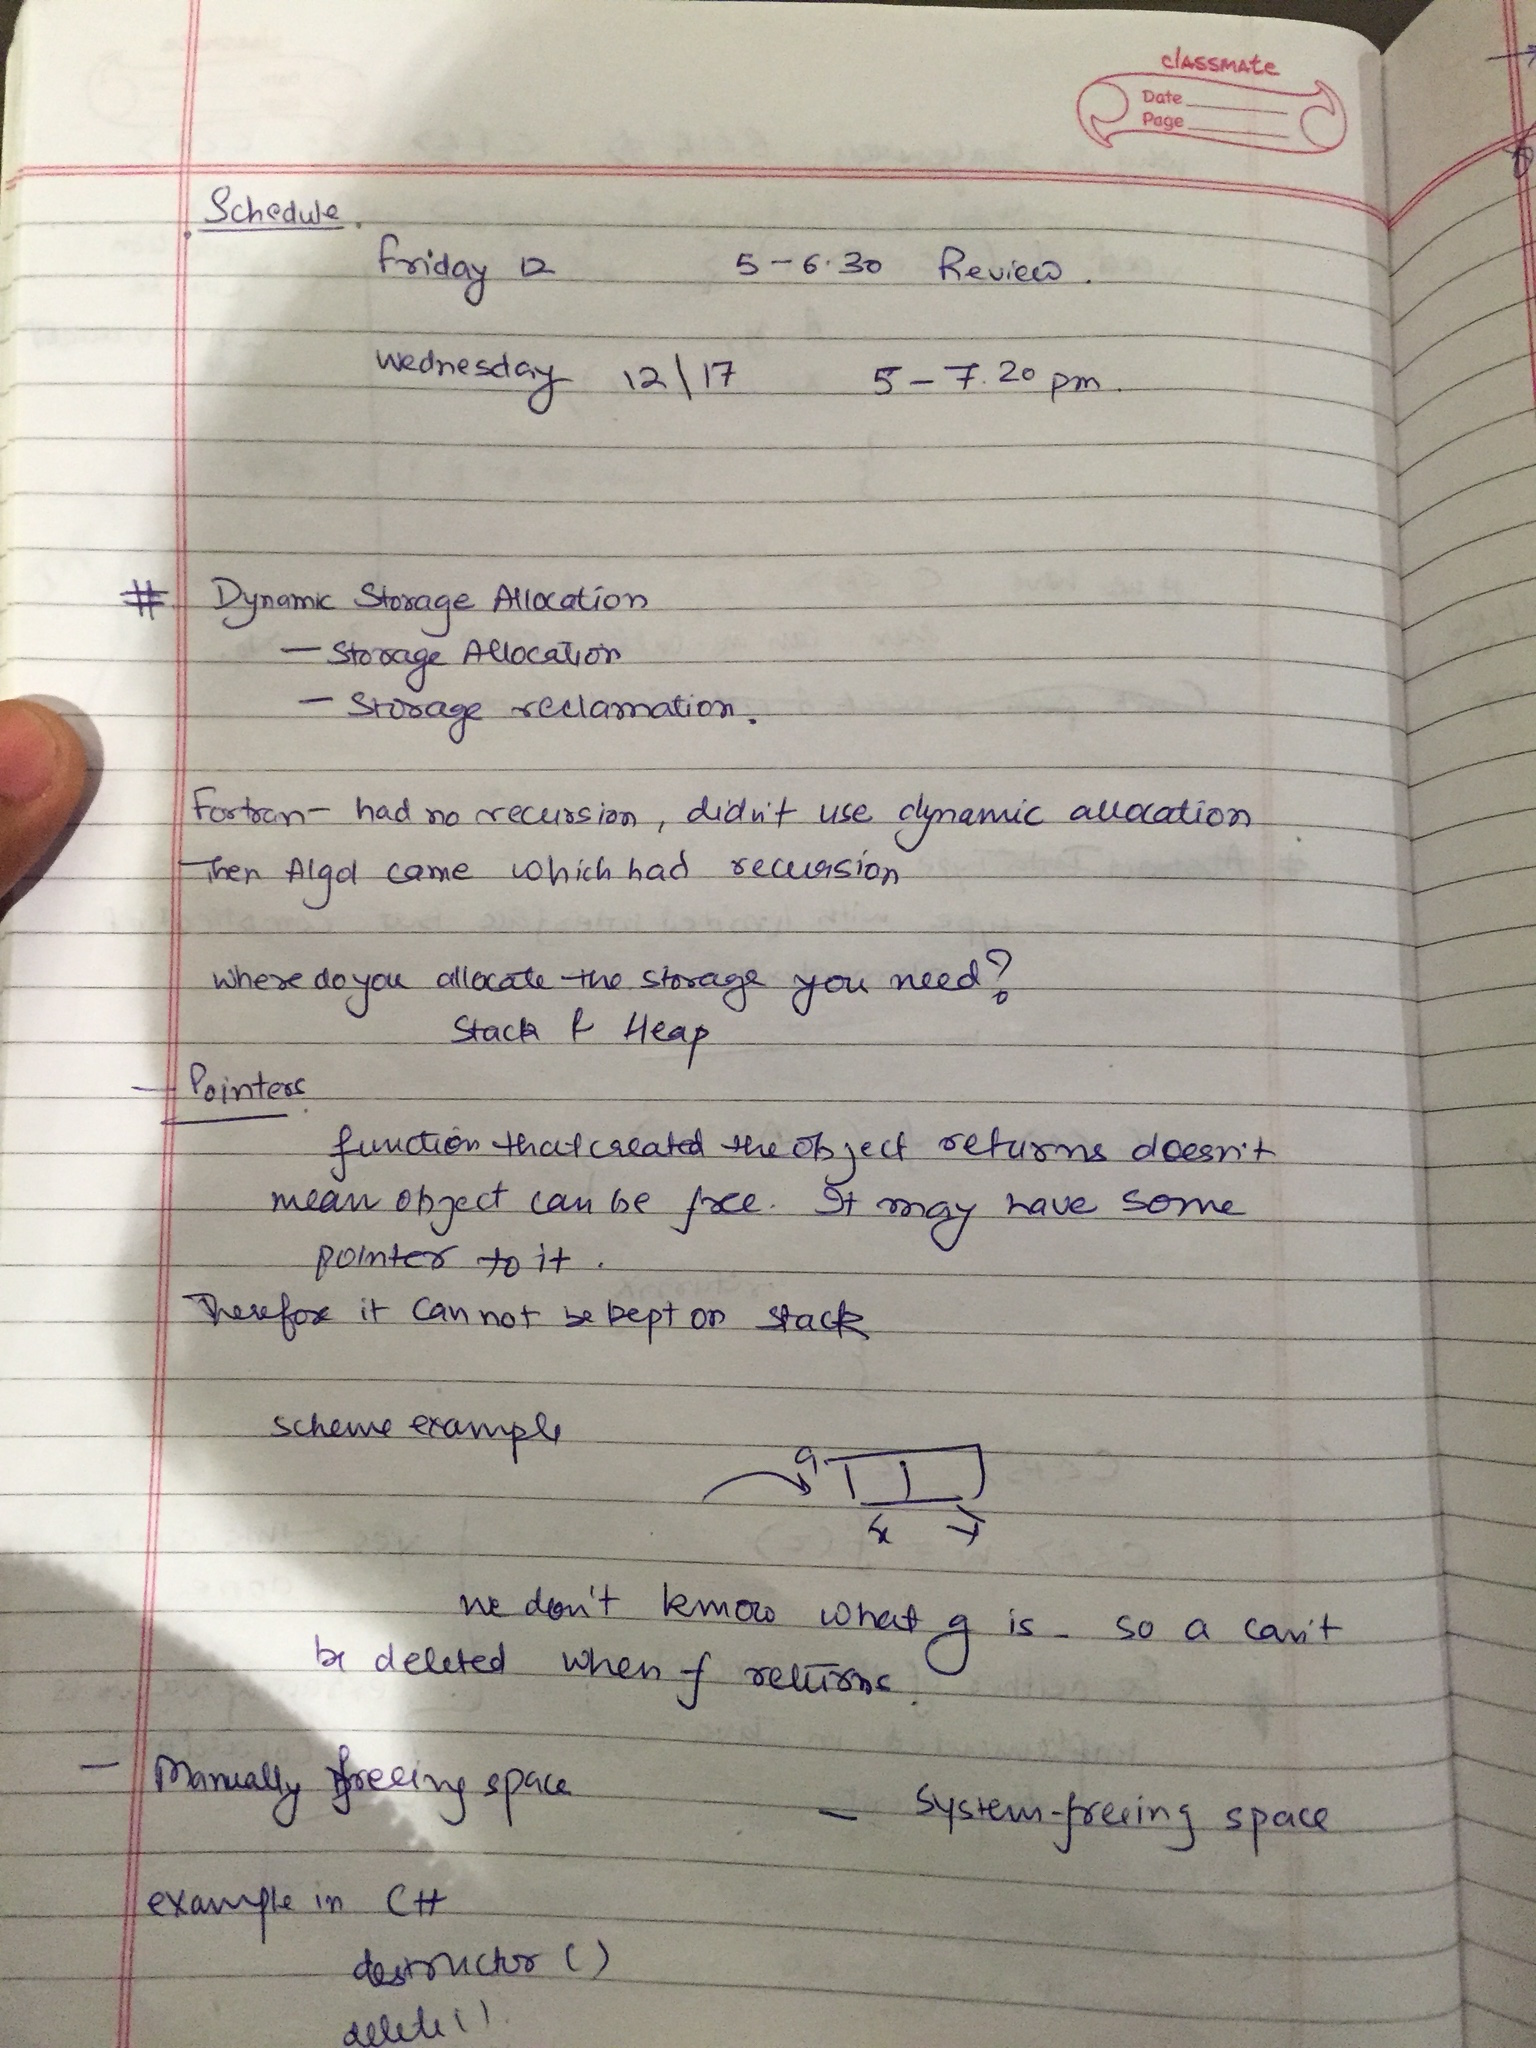 classmate
Date
Page
Schedule.
Friday 12 5-6.30 Review.
Wednesday 12\17 5-7.20 pm.
# Dynamic Storage Allocation
- Storage Allocation
- Storage reclamation.
Fortran- had no recursion, didn't use dynamic allocation
Then Algol came which had recursion
where do you allocate the storage you need?
Stack & Heap
- Pointers
function that created the object returns doesn't
mean object can be free. It may have some
pointer to it.
Therefore it cannot be kept on stack
scheme example
a
x y
we don't know what g is - so a can't
be deleted when f returns.
- Manually freeing space - System-freeing space
example in C++
destructor ()
delete ()